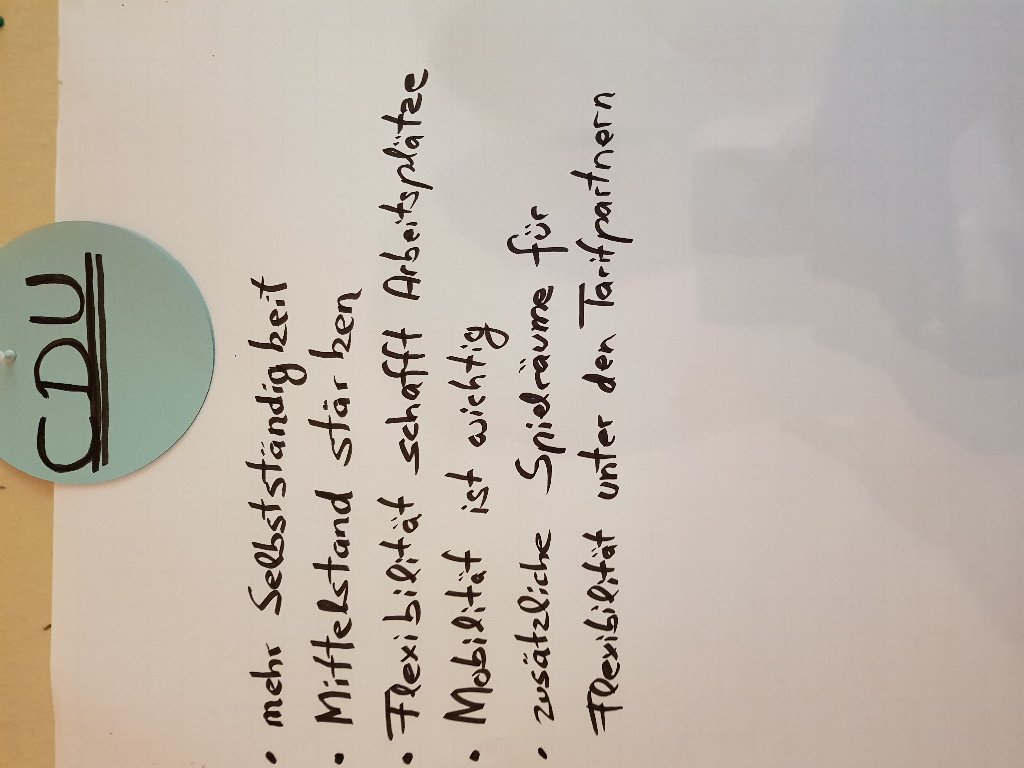 CDU
• mehr Selbstständigkeit
• Mittelstand stärken
• Flexibilität schafft Arbeitsplätze
• Mobilität ist wichtig
• zusätzliche Spielräume für
Flexibilität unter den Tarifpartnern